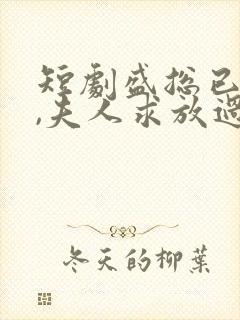 短劇盛总已
,夫人求放過
冬天的柳葉